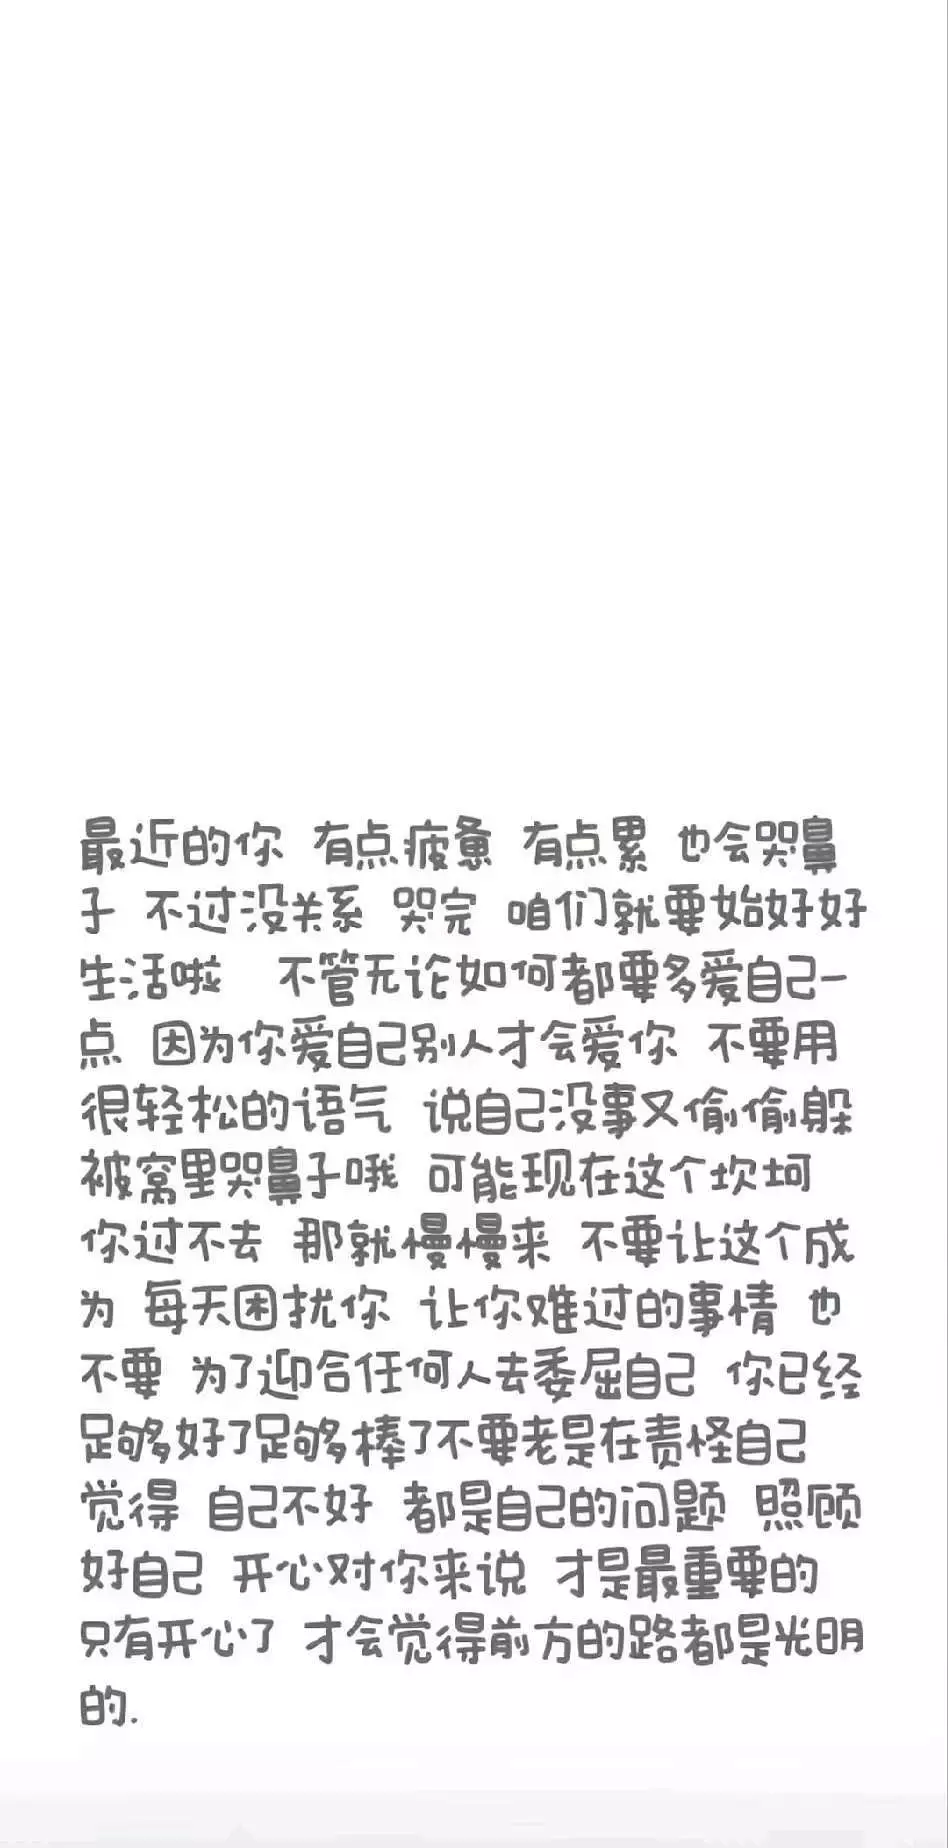 最近的你 有点疲惫 有点累 也会哭鼻
子 不过没关系 哭完 咱们就要始好好
生活啦 不管无论如何都要多爱自己一
点 因为你爱自己别人才会爱你 不要用
很轻松的语气 说自己没事又偷偷躲
被窝里哭鼻子哦 可能现在这个坎坷
你过不去 那就慢慢来 不要让这个成
为 每天困扰你 让你难过的事情 也
不要 为了迎合任何人去委屈自己 你已经
足够好了足够棒了不要老是在责怪自己
觉得 自己不好 都是自己的问题 照顾
好自己 开心对你来说 才是最重要的
只有开心了 才会觉得前方的路都是光明
的.